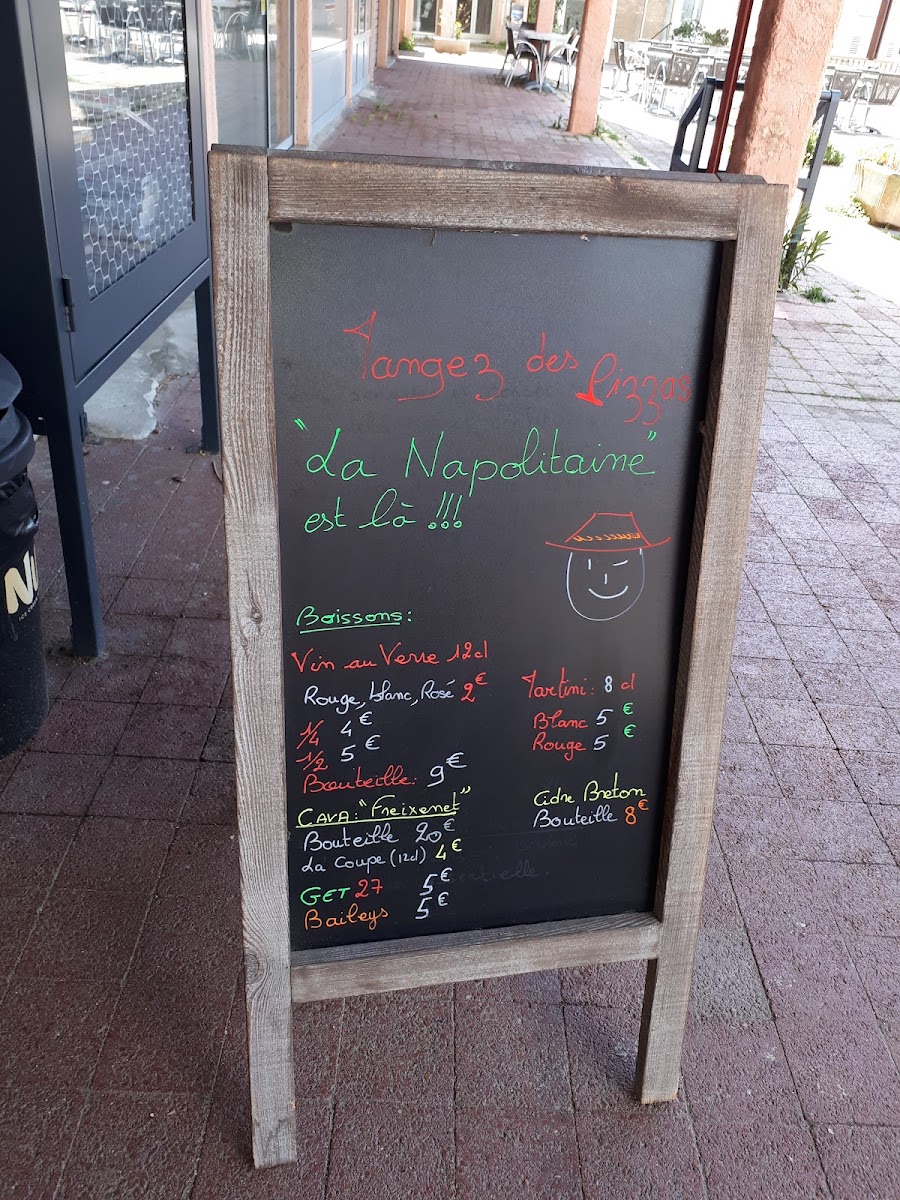 Mangez des Pizzas
"La Napolitaine"
est là !!!
Boissons:
Vin au Verre 12cl
Rouge, blanc, Rosé 2€
1/4 4€
1/2 5€
Bouteille: 9€
CAVA: "Freixenet"
Bouteille 20€
La Coupe (12cl) 4€
GET 27 5€
Baileys 5€
Martini: 8 cl
Blanc 5 €
Rouge 5 €
Cidre Breton
Bouteille 8€